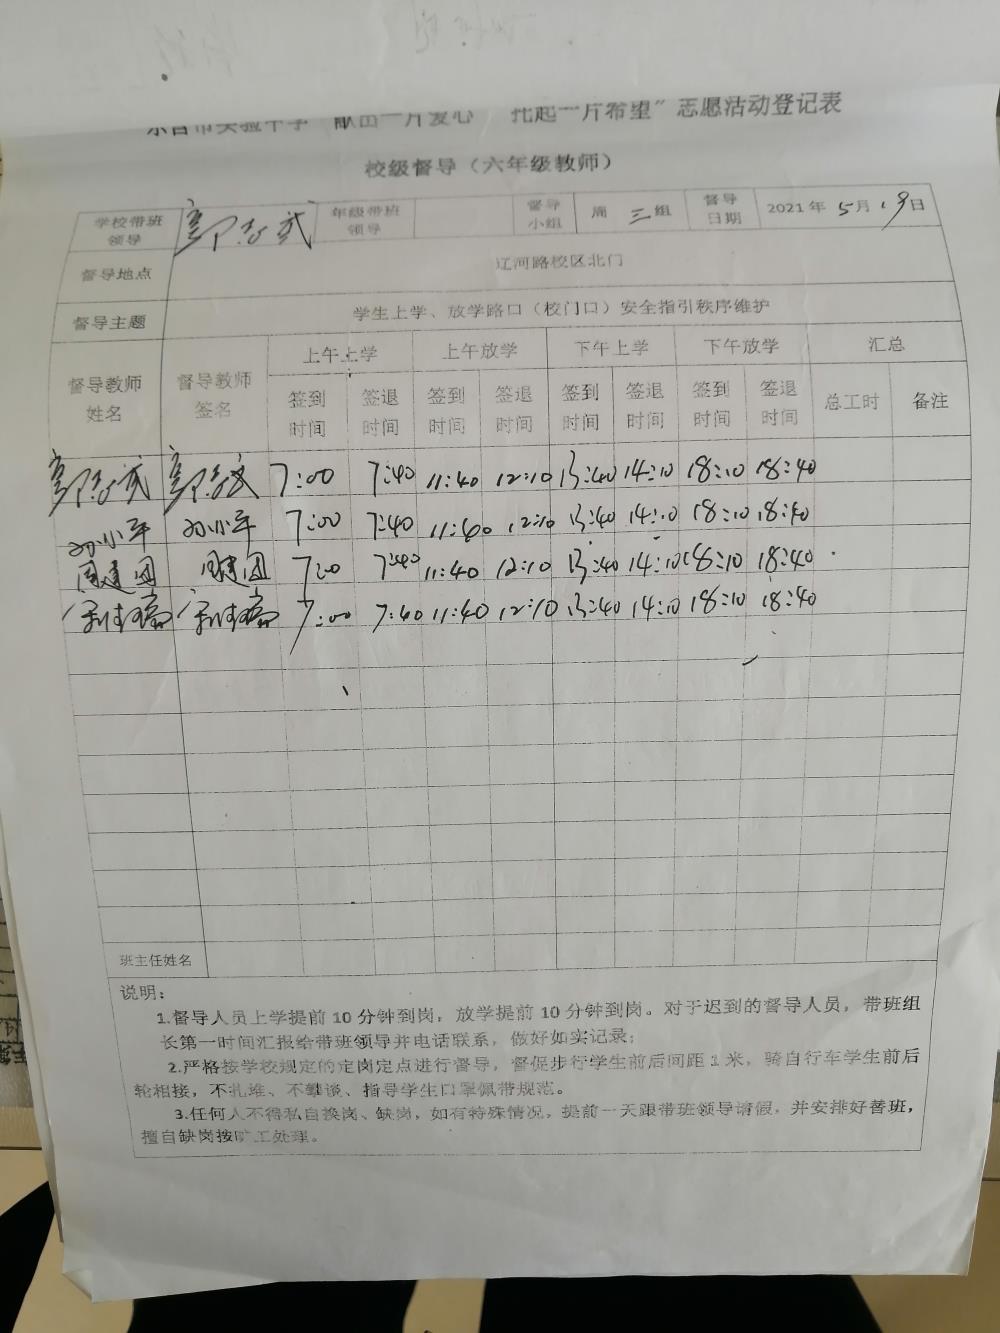 市实验中学"献出一片爱心 托起一片希望"志愿活动登记表
校级督导（六年级教师）
学校带班领导 年级带班领导 督导小组 周三组 督导日期 2021年5月19日
督导地点 辽河路校区北门
督导主题 学生上学、放学路口（校门口）安全指引秩序维护
督导教师姓名 督导教师签名 上午上学 上午放学 下午上学 下午放学 汇总
签到时间 签退时间 签到时间 签退时间 签到时间 签退时间 签到时间 签退时间 总工时 备注
7:00 7:40 11:40 12:10 13:40 14:10 18:10 18:40
孙小平 孙小平 7:00 7:40 11:40 12:10 13:40 14:10 18:10 18:40
周建国 周建国 7:00 7:40 11:40 12:10 13:40 14:10 18:10 18:40
7:00 7:40 11:40 12:10 13:40 14:10 18:10 18:40
班主任姓名
说明：
1.督导人员上学提前10分钟到岗，放学提前10分钟到岗。对于迟到的督导人员，带班组
长第一时间汇报给带班领导并电话联系，做好如实记录；
2.严格按学校规定的定岗定点进行督导，督促步行学生前后间距1米，骑自行车学生前后
轮相接，不扎堆、不攀谈、指导学生口罩佩带规范。
3.任何人不得私自换岗、缺岗，如有特殊情况，提前一天跟带班领导请假，并安排好替班，
擅自缺岗按旷工处理。